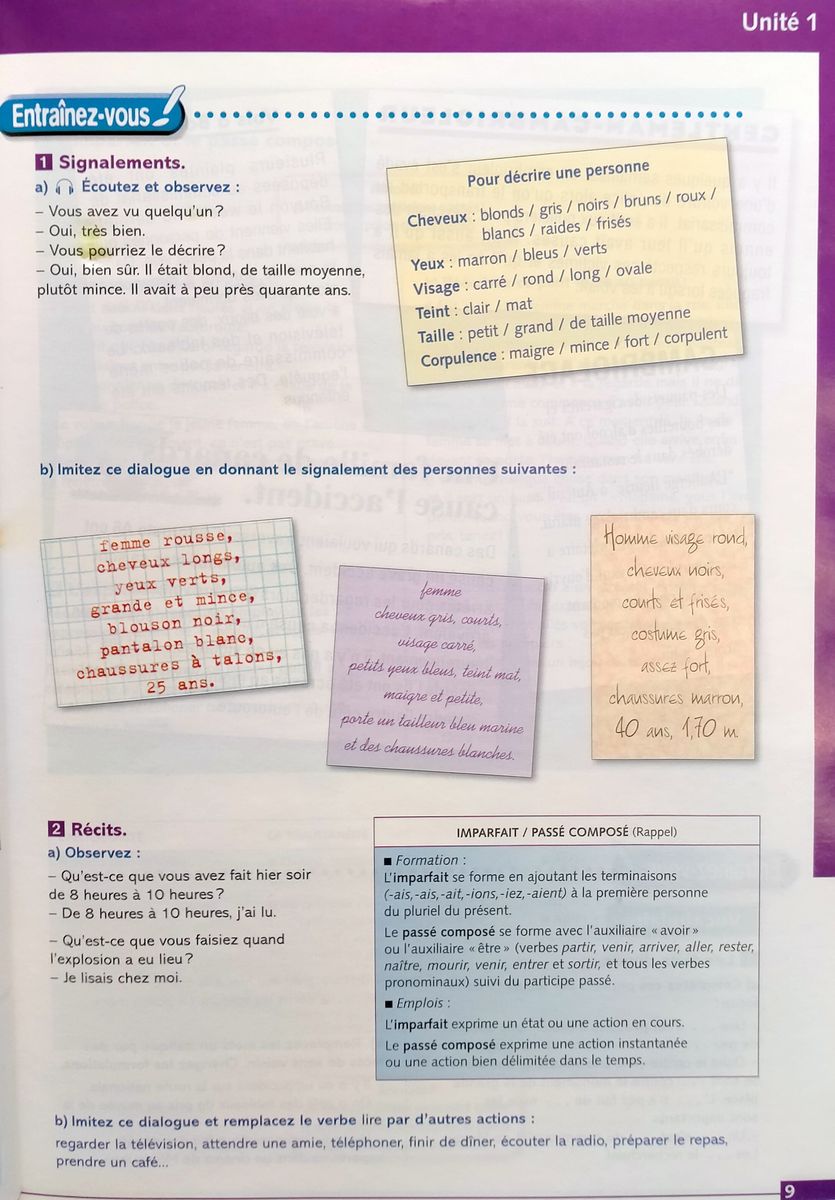 Unité 1
Entraînez-vous
1 Signalements.
a) Écoutez et observez :
– Vous avez vu quelqu'un ?
– Oui, très bien.
– Vous pourriez le décrire ?
– Oui, bien sûr. Il était blond, de taille moyenne,
plutôt mince. Il avait à peu près quarante ans.
Pour décrire une personne
Cheveux : blonds / gris / noirs / bruns / roux /
blancs / raides / frisés
Yeux : marron / bleus / verts
Visage : carré / rond / long / ovale
Teint : clair / mat
Taille : petit / grand / de taille moyenne
Corpulence : maigre / mince / fort / corpulent
b) Imitez ce dialogue en donnant le signalement des personnes suivantes :
femme rousse,
cheveux longs,
yeux verts,
grande et mince,
blouson noir,
pantalon blanc,
chaussures à talons,
25 ans.
femme
cheveux gris, courts,
visage carré,
petits yeux bleus, teint mat,
maigre et petite,
porte un tailleur bleu marine
et des chaussures blanches.
Homme visage rond,
cheveux noirs,
courts et frisés,
costume gris,
assez fort,
chaussures marron,
40 ans, 1,70 m.
2 Récits.
a) Observez :
– Qu'est-ce que vous avez fait hier soir
de 8 heures à 10 heures ?
– De 8 heures à 10 heures, j'ai lu.
– Qu'est-ce que vous faisiez quand
l'explosion a eu lieu ?
– Je lisais chez moi.
IMPARFAIT / PASSÉ COMPOSÉ (Rappel)
■ Formation :
L'imparfait se forme en ajoutant les terminaisons
(-ais, -ais, -ait, -ions, -iez, -aient) à la première personne
du pluriel du présent.
Le passé composé se forme avec l'auxiliaire « avoir »
ou l'auxiliaire « être » (verbes partir, venir, arriver, aller, rester,
naître, mourir, venir, entrer et sortir, et tous les verbes
pronominaux) suivi du participe passé.
■ Emplois :
L'imparfait exprime un état ou une action en cours.
Le passé composé exprime une action instantanée
ou une action bien délimitée dans le temps.
b) Imitez ce dialogue et remplacez le verbe lire par d'autres actions :
regarder la télévision, attendre une amie, téléphoner, finir de dîner, écouter la radio, préparer le repas,
prendre un café...
9